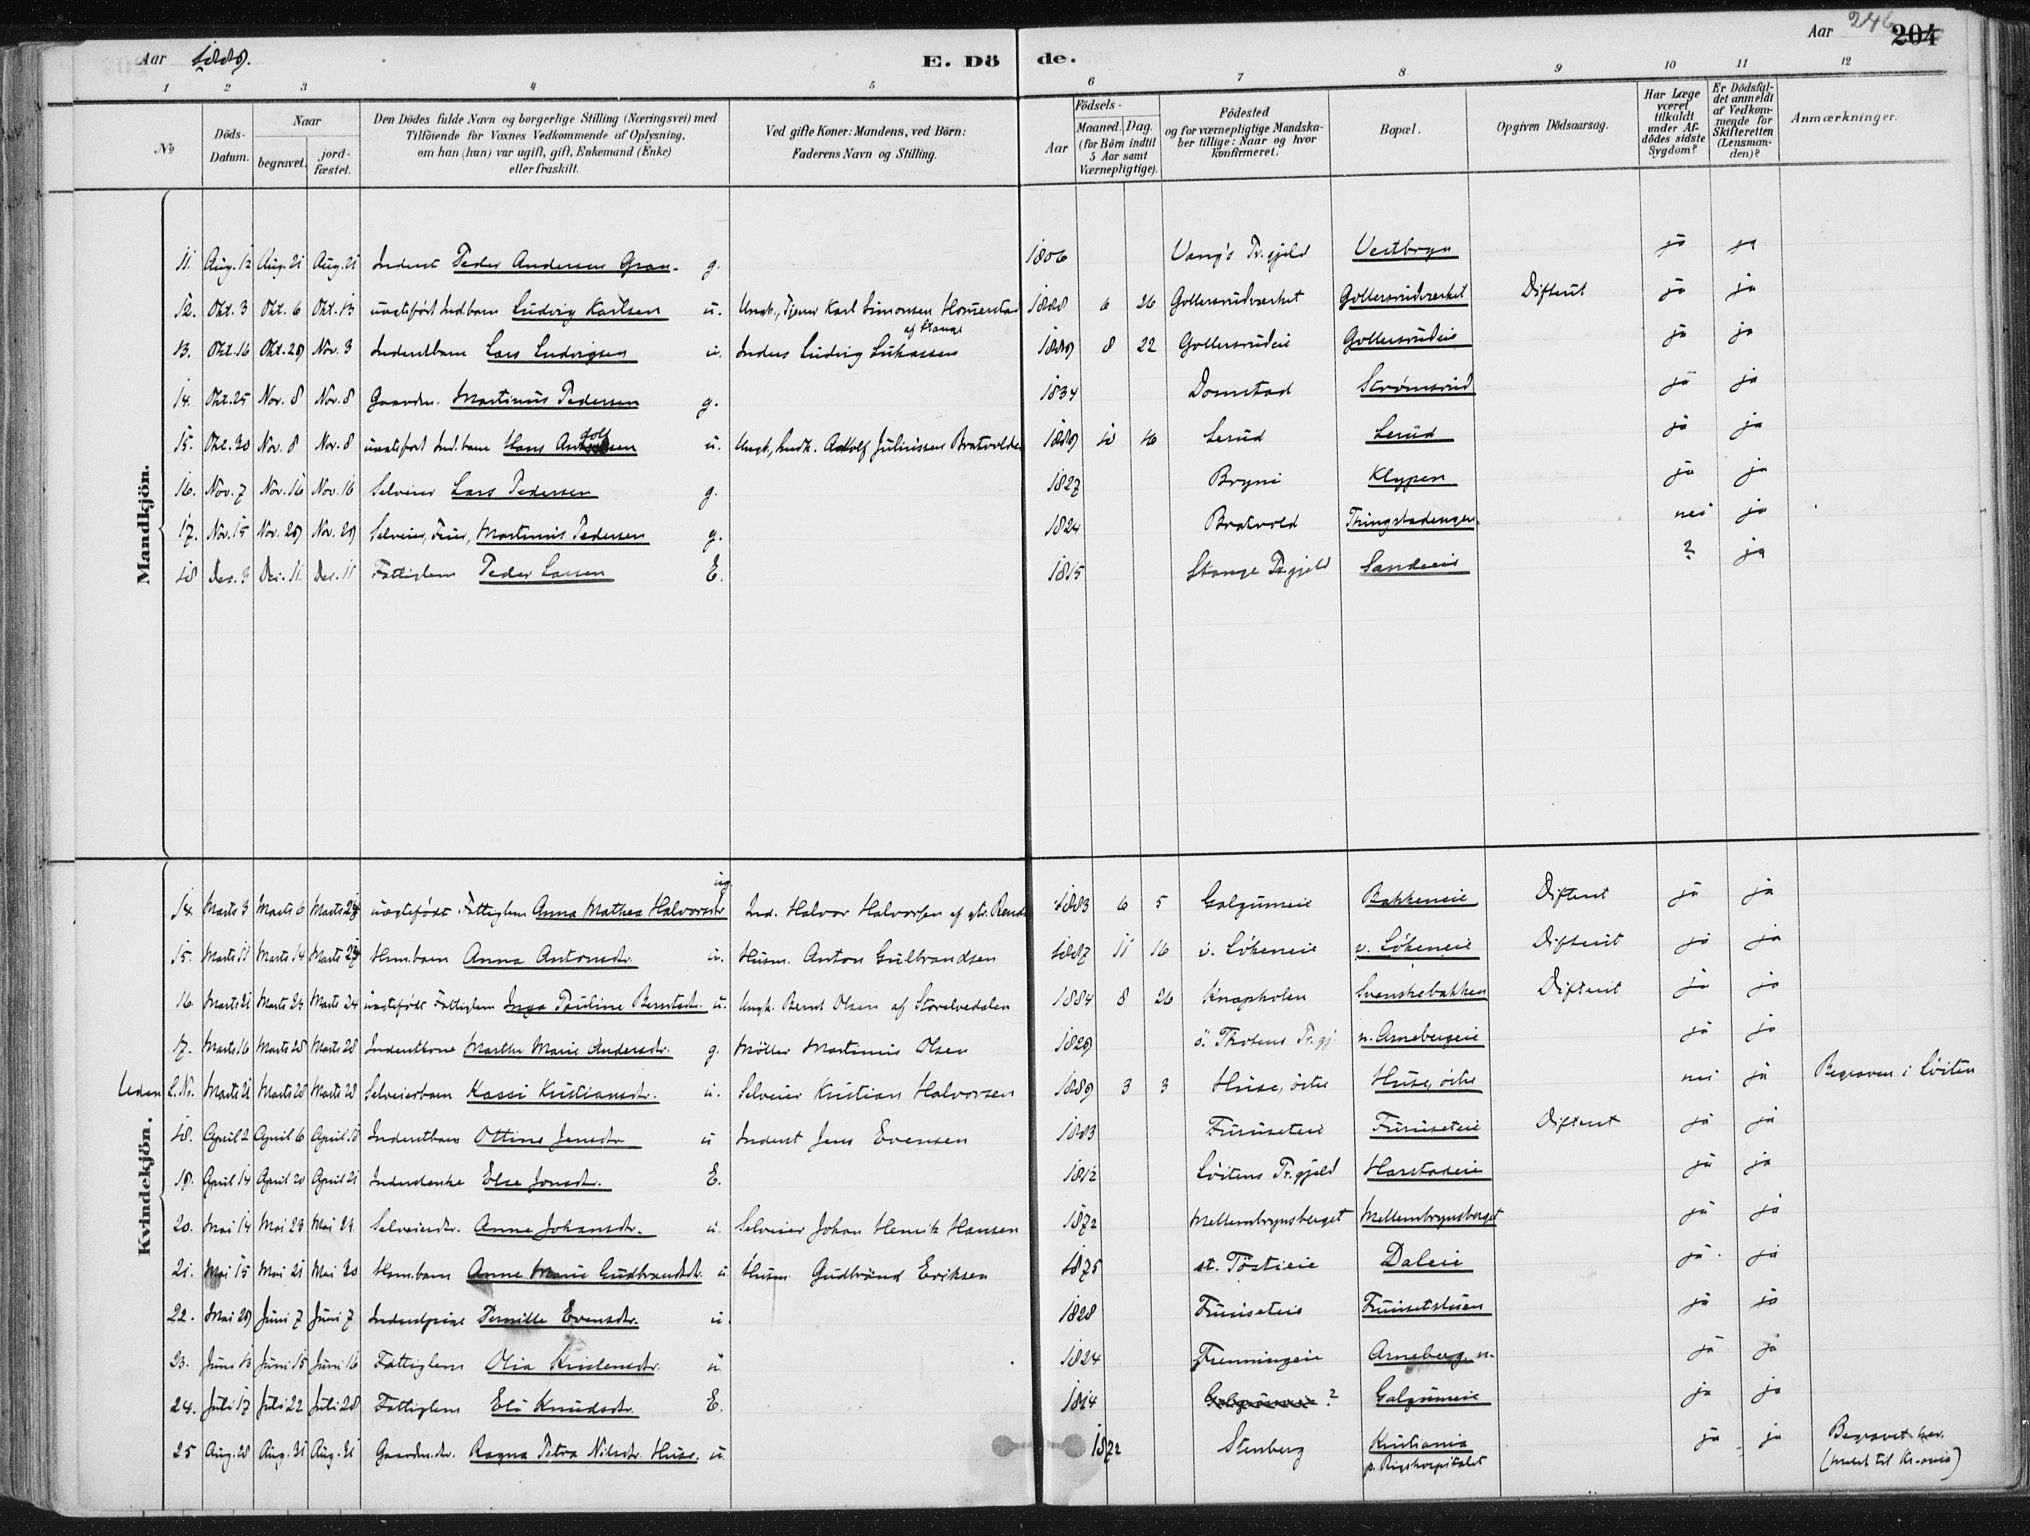 Aar 1889. E. Dö de. Aar 246 204
1 2 3 4 5 6 7 8 9 10 11 12
No Döds-Datum. Naar begravet. jord-fæstet. Den Dödes fulde Navn og borgerlige Stilling (Næringsvei) med Tilföiende for Voxnes Vedkommende af Oplysning, om han (hun) var ugift, gift, Enkemand (Enke) eller fraskilt. Ved gifte Koner: Mandens, ved Börn: Faderens Navn og Stilling. Födsels- Aar Maaned. Dag. (for Börn indtil 5 Aar samt Værnepligtige). Födested og for værnepligtige Mandskaber tillige: Naar og hvor konfirmeret. Bopæl. Opgiven Dödsaarsag. Har Læge været tilkaldt under Afdödes sidste Sygdom? Er Dödsfaldet anmeldt af Vedkommende for Skifteretten (Lensmanden)? Anmærkninger.
Mandkjön.
11. Aug. 12 Aug. 21 Aug. 21 Inderst Peder Andersen Gran. g. 1806 Vang's Pr.gjeld Vestbryn ja ja
12. Okt. 3 Okt. 6 Okt. 13 uægteført Ind.barn Ludvig Karlsen u. Ungk., Tjener Karl Simonsen Homerstad af Stange 1888 6 26 Gollersrudværket Gollersrudværket Difterit ja ja
13. Okt. 16 Okt. 29 Nov. 3 Inderstbarn Lars Ludvigsen u. Inders Ludvig Lukassen 1889 8 22 Gollersrudeie Gollersrudeie ja ja
14. Okt. 25 Nov. 8 Nov. 8 Gaardm. Martinus Pedersen g. 1834 Domstad Strømsrud ja ja
15. Okt. 30 Nov. 8 Nov. 8 uægteført Ind.barn Hans Adolfsen u. Ungk., Adolf Juliussen Bratvolden 1889 10 Lerud Lerud ja ja
16. Nov. 7 Nov. 16 Nov. 16 Selveier Lars Pedersen g. 1827 Bryni Klypen ja ja
17. Nov. 15 Nov. 29 Nov. 29 Selveier, Martinus Pedersen g. 1824 Bratvold Thingstadenger nei ja
18 Dec. 3 Dec. 11 Dec. 11 Fattiglem Peder Larsen E. 1815 Stange Pr.gjeld Sandeeie ? ja
Kvindekjön.
14. Marts 3 Marts 6 Marts 24 uægtefödt Fattiglem Anna Mathea Halvorsdtr ug Ind. Halvor Halvorsen af str. Rends 1883 6 5 Galgumeie Bakkeneie Difterit ja ja
15. Marts 11 Marts 14 Marts 24 Hsm.barn Anna Antonsdtr. u. Husm. Anton Gulbrandsen 1887 11 16 v. Lökeneie v. Lökeneie Difterit ja ja
16. Marts 21 Marts 24 Marts 24 uægtefödt Fattiglem Inga Pauline Berntsdtr. u. Ungk. Bernt Olsen af Storelvedalen 1884 8 26 Knapholen Svenskebakken Difterit ja ja
17. Marts 16 Marts 28 Marts 28 Inderstkone Marthe Marie Andersdtr. g. Möller Martinus Olsen 1829 ö. Thotens Pr.gj. n. Arnebergeie ja ja
Uden L.Nr. Marts 21 Marts 28 Marts 28 Selveierbarn Kassi Kristiansdtr. u. Selveier Kristian Halvorsen 1889 3 3 Huse, östre Huse, östre nei ja Begraven i Löiten
18. April 2 April 6 April 18 Inderstbarn Ottine Jensdtr u Inderst Jens Evensen 1883 Furuseteie Furuseteie Difterit ja ja
19. April 14 April 20 April 21 Inderstenke Else Jonsdtr. E. 1812 Löitens Pr.gjeld Harstadeie ja ja
20. Mai 14 Mai 24 Mai 24 Selveierdtr. Anne Johansdtr. u. Selveier Johan Henrik Hansen 1872 Mellembrynsberget Mellembrynsberget ja ja
21. Mai 15 Mai 21 Mai 30 Hsm.barn Anne Marie Gudbrandsdtr. u Husm. Gudbrand Eriksen 1875 st. Töstieie Daleie ja ja
22. Mai 29 Juni 7 Juni 7 Inderstpige Pernille Evensdtr. u. 1828 Furuseteie Furusetstuen ja ja
23. Juni 13 Juni 15 Juni 16 Fattiglem Olia Kristensdtr. u 1824 Frenningeie Arneberg n. ja ja
24. Juli 17 Juli 22 Juli 28 Fattiglem Eli Knudsdtr. E. 1814 Galgumeie ? Galgumeie ja ja
25 Aug. 28 Aug. 31 Aug. 31 Gaardm.dtr. Ragna Petra Nilsdtr. Huse. u. 1872 Stenberg Kristiania p. Rigshospitalet ja ja Begravet her. (meldt til Kr.ania)